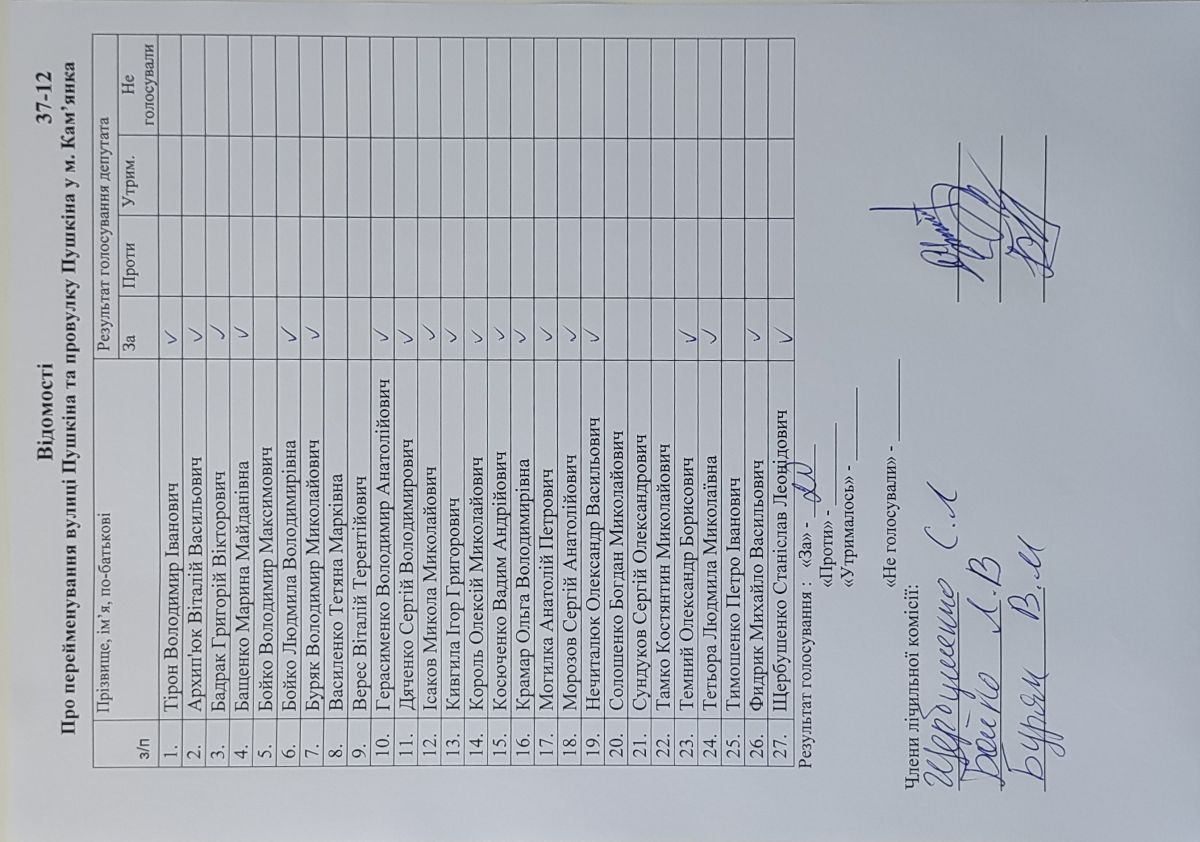 Відомості 37-12
Про перейменування вулиці Пушкіна та провулку Пушкіна у м. Кам’янка
з/п Прізвище, ім’я, по-батькові Результат голосування депутата
За Проти Утрим. Не голосували
1. Тірон Володимир Іванович ✓
2. Архип'юк Віталій Васильович ✓
3. Бадрак Григорій Вікторович ✓
4. Бащенко Марина Майданівна ✓
5. Бойко Володимир Максимович
6. Бойко Людмила Володимирівна ✓
7. Буряк Володимир Миколайович ✓
8. Василенко Тетяна Марківна
9. Верес Віталій Терентійович
10. Герасименко Володимир Анатолійович ✓
11. Дяченко Сергій Володимирович ✓
12. Ісаков Микола Миколайович ✓
13. Кивгила Ігор Григорович ✓
14. Король Олексій Миколайович ✓
15. Косюченко Вадим Андрійович ✓
16. Крамар Ольга Володимирівна ✓
17. Могилка Анатолій Петрович ✓
18. Морозов Сергій Анатолійович ✓
19. Нечиталюк Олександр Васильович ✓
20. Солошенко Богдан Миколайович
21. Сундуков Сергій Олександрович
22. Тамко Костянтин Миколайович
23. Темний Олександр Борисович ✓
24. Тетьора Людмила Миколаївна ✓
25. Тимошенко Петро Іванович
26. Фидрик Михайло Васильович ✓
27. Щербушенко Станіслав Леонідович ✓
Результат голосування : «За» - 20
«Проти» -
«Утрималось» -
«Не голосували» -
Члени лічильної комісії:
Щербушенко С.Л
Бойко Л.В
Буряк В.М